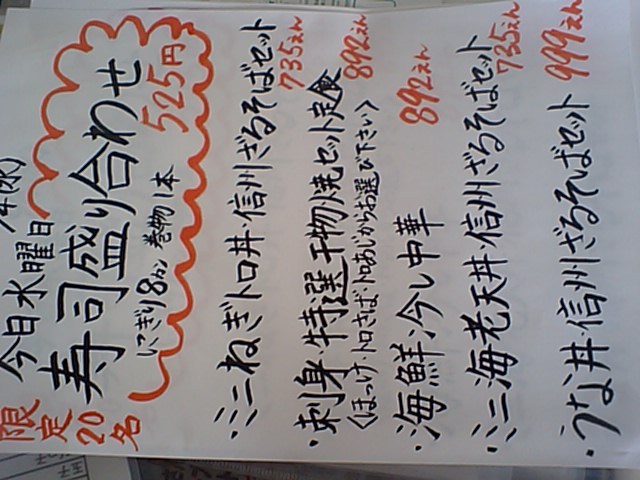 4(水)
今日水曜日
限定20名
寿司盛り合わせ
525円
にぎり8カン 巻物1本
・ミニねぎトロ丼・信州ざるそばセット
735えん
・刺身・特選干物焼セット定食
892えん
〈ほっけ・トロさば・トロあじからお選び下さい〉
・海鮮冷し中華
892えん
・ミニ海老天丼・信州ざるそばセット
735えん
・うな丼・信州ざるそばセット
999えん